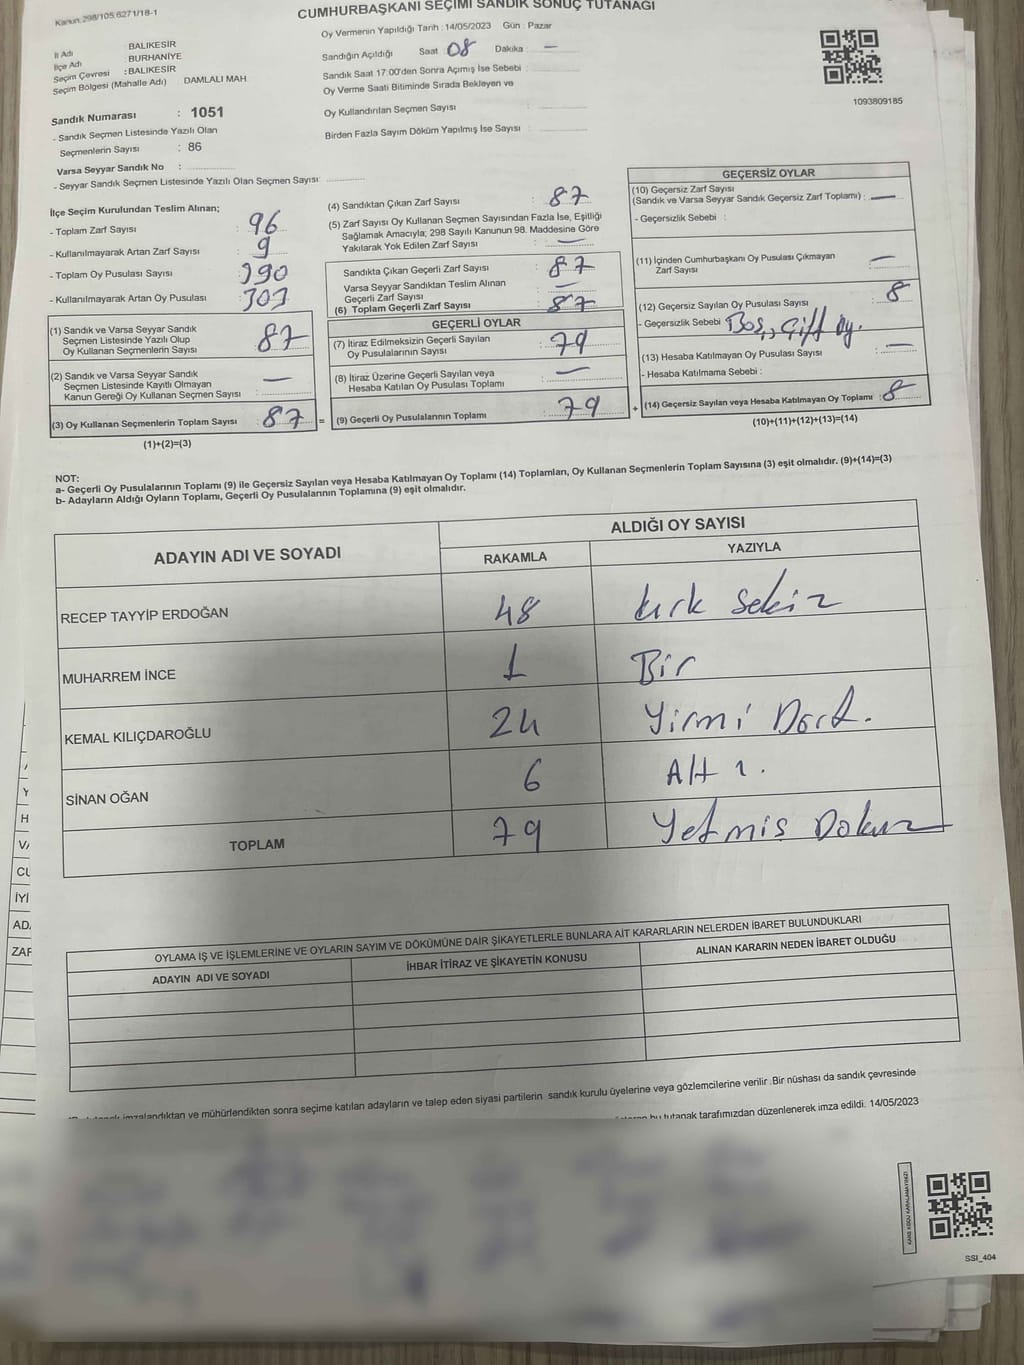 Kanun:298/105,6271/18-1
CUMHURBAŞKANI SEÇİMİ SANDIK SONUÇ TUTANAĞI
İl Adı BALIKESİR
İlçe Adı BURHANİYE
Seçim Çevresi : BALIKESİR
Seçim Bölgesi (Mahalle Adı) DAMLALI MAH
Sandık Numarası : 1051
- Sandık Seçmen Listesinde Yazılı Olan
Seçmenlerin Sayısı : 86
Varsa Seyyar Sandık No :
- Seyyar Sandık Seçmen Listesinde Yazılı Olan Seçmen Sayısı:
Oy Vermenin Yapıldığı Tarih : 14/05/2023 Gün : Pazar
Sandığın Açıldığı Saat : 08 Dakika : —
Sandık Saat 17:00'den Sonra Açımış İse Sebebi :
Oy Verme Saati Bitiminde Sırada Bekleyen ve
Oy Kullandırılan Seçmen Sayısı :
Birden Fazla Sayım Döküm Yapılmış İse Sayısı :
1093809185
İlçe Seçim Kurulundan Teslim Alınan;
- Toplam Zarf Sayısı : 96
- Kullanılmayarak Artan Zarf Sayısı : 9
- Toplam Oy Pusulası Sayısı : 390
- Kullanılmayarak Artan Oy Pusulası : 303
(1) Sandık ve Varsa Seyyar Sandık
Seçmen Listesinde Yazılı Olup
Oy Kullanan Seçmenlerin Sayısı : 87
(2) Sandık ve Varsa Seyyar Sandık
Seçmen Listesinde Kayıtlı Olmayan
Kanun Gereği Oy Kullanan Seçmen Sayısı : —
(3) Oy Kullanan Seçmenlerin Toplam Sayısı : 87 =
(1)+(2)=(3)
(4) Sandıktan Çıkan Zarf Sayısı : 87
(5) Zarf Sayısı Oy Kullanan Seçmen Sayısından Fazla İse, Eşitliği
Sağlamak Amacıyla; 298 Sayılı Kanunun 98. Maddesine Göre
Yakılarak Yok Edilen Zarf Sayısı : —
Sandıkta Çıkan Geçerli Zarf Sayısı : 87
Varsa Seyyar Sandıktan Teslim Alınan
Geçerli Zarf Sayısı : —
(6) Toplam Geçerli Zarf Sayısı : 87
GEÇERLİ OYLAR
(7) İtiraz Edilmeksizin Geçerli Sayılan
Oy Pusulalarının Sayısı : 79
(8) İtiraz Üzerine Geçerli Sayılan veya
Hesaba Katılan Oy Pusulası Toplamı : —
(9) Geçerli Oy Pusulalarının Toplamı : 79 +
GEÇERSİZ OYLAR
(10) Geçersiz Zarf Sayısı
(Sandık ve Varsa Seyyar Sandık Geçersiz Zarf Toplamı) : —
- Geçersizlik Sebebi :
(11) İçinden Cumhurbaşkanı Oy Pusulası Çıkmayan
Zarf Sayısı : —
(12) Geçersiz Sayılan Oy Pusulası Sayısı : 8
- Geçersizlik Sebebi : Boş, Çift Oy.
(13) Hesaba Katılmayan Oy Pusulası Sayısı : —
- Hesaba Katılmama Sebebi :
(14) Geçersiz Sayılan veya Hesaba Katılmayan Oy Toplamı : 8
(10)+(11)+(12)+(13)=(14)
NOT:
a- Geçerli Oy Pusulalarının Toplamı (9) ile Geçersiz Sayılan veya Hesaba Katılmayan Oy Toplamı (14) Toplamları, Oy Kullanan Seçmenlerin Toplam Sayısına (3) eşit olmalıdır. (9)+(14)=(3)
b- Adayların Aldığı Oyların Toplamı, Geçerli Oy Pusulalarının Toplamına (9) eşit olmalıdır.
ADAYIN ADI VE SOYADI ALDIĞI OY SAYISI
RAKAMLA YAZIYLA
RECEP TAYYİP ERDOĞAN 48 kırk sekiz
MUHARREM İNCE 1 Bir
KEMAL KILIÇDAROĞLU 24 Yirmi Dört.
SİNAN OĞAN 6 Altı.
TOPLAM 79 Yetmis Dokuz
OYLAMA İŞ VE İŞLEMLERİNE VE OYLARIN SAYIM VE DÖKÜMÜNE DAİR ŞİKAYETLERLE BUNLARA AİT KARARLARIN NELERDEN İBARET BULUNDUKLARI
ADAYIN ADI VE SOYADI İHBAR İTİRAZ VE ŞİKAYETİN KONUSU ALINAN KARARIN NEDEN İBARET OLDUĞU
imzalandıktan ve mühürlendikten sonra seçime katılan adayların ve talep eden siyasi partilerin sandık kurulu üyelerine veya gözlemcilerine verilir .Bir nüshası da sandık çevresinde
bu tutanak tarafımızdan düzenlenerek imza edildi. 14/05/2023
SSI_404